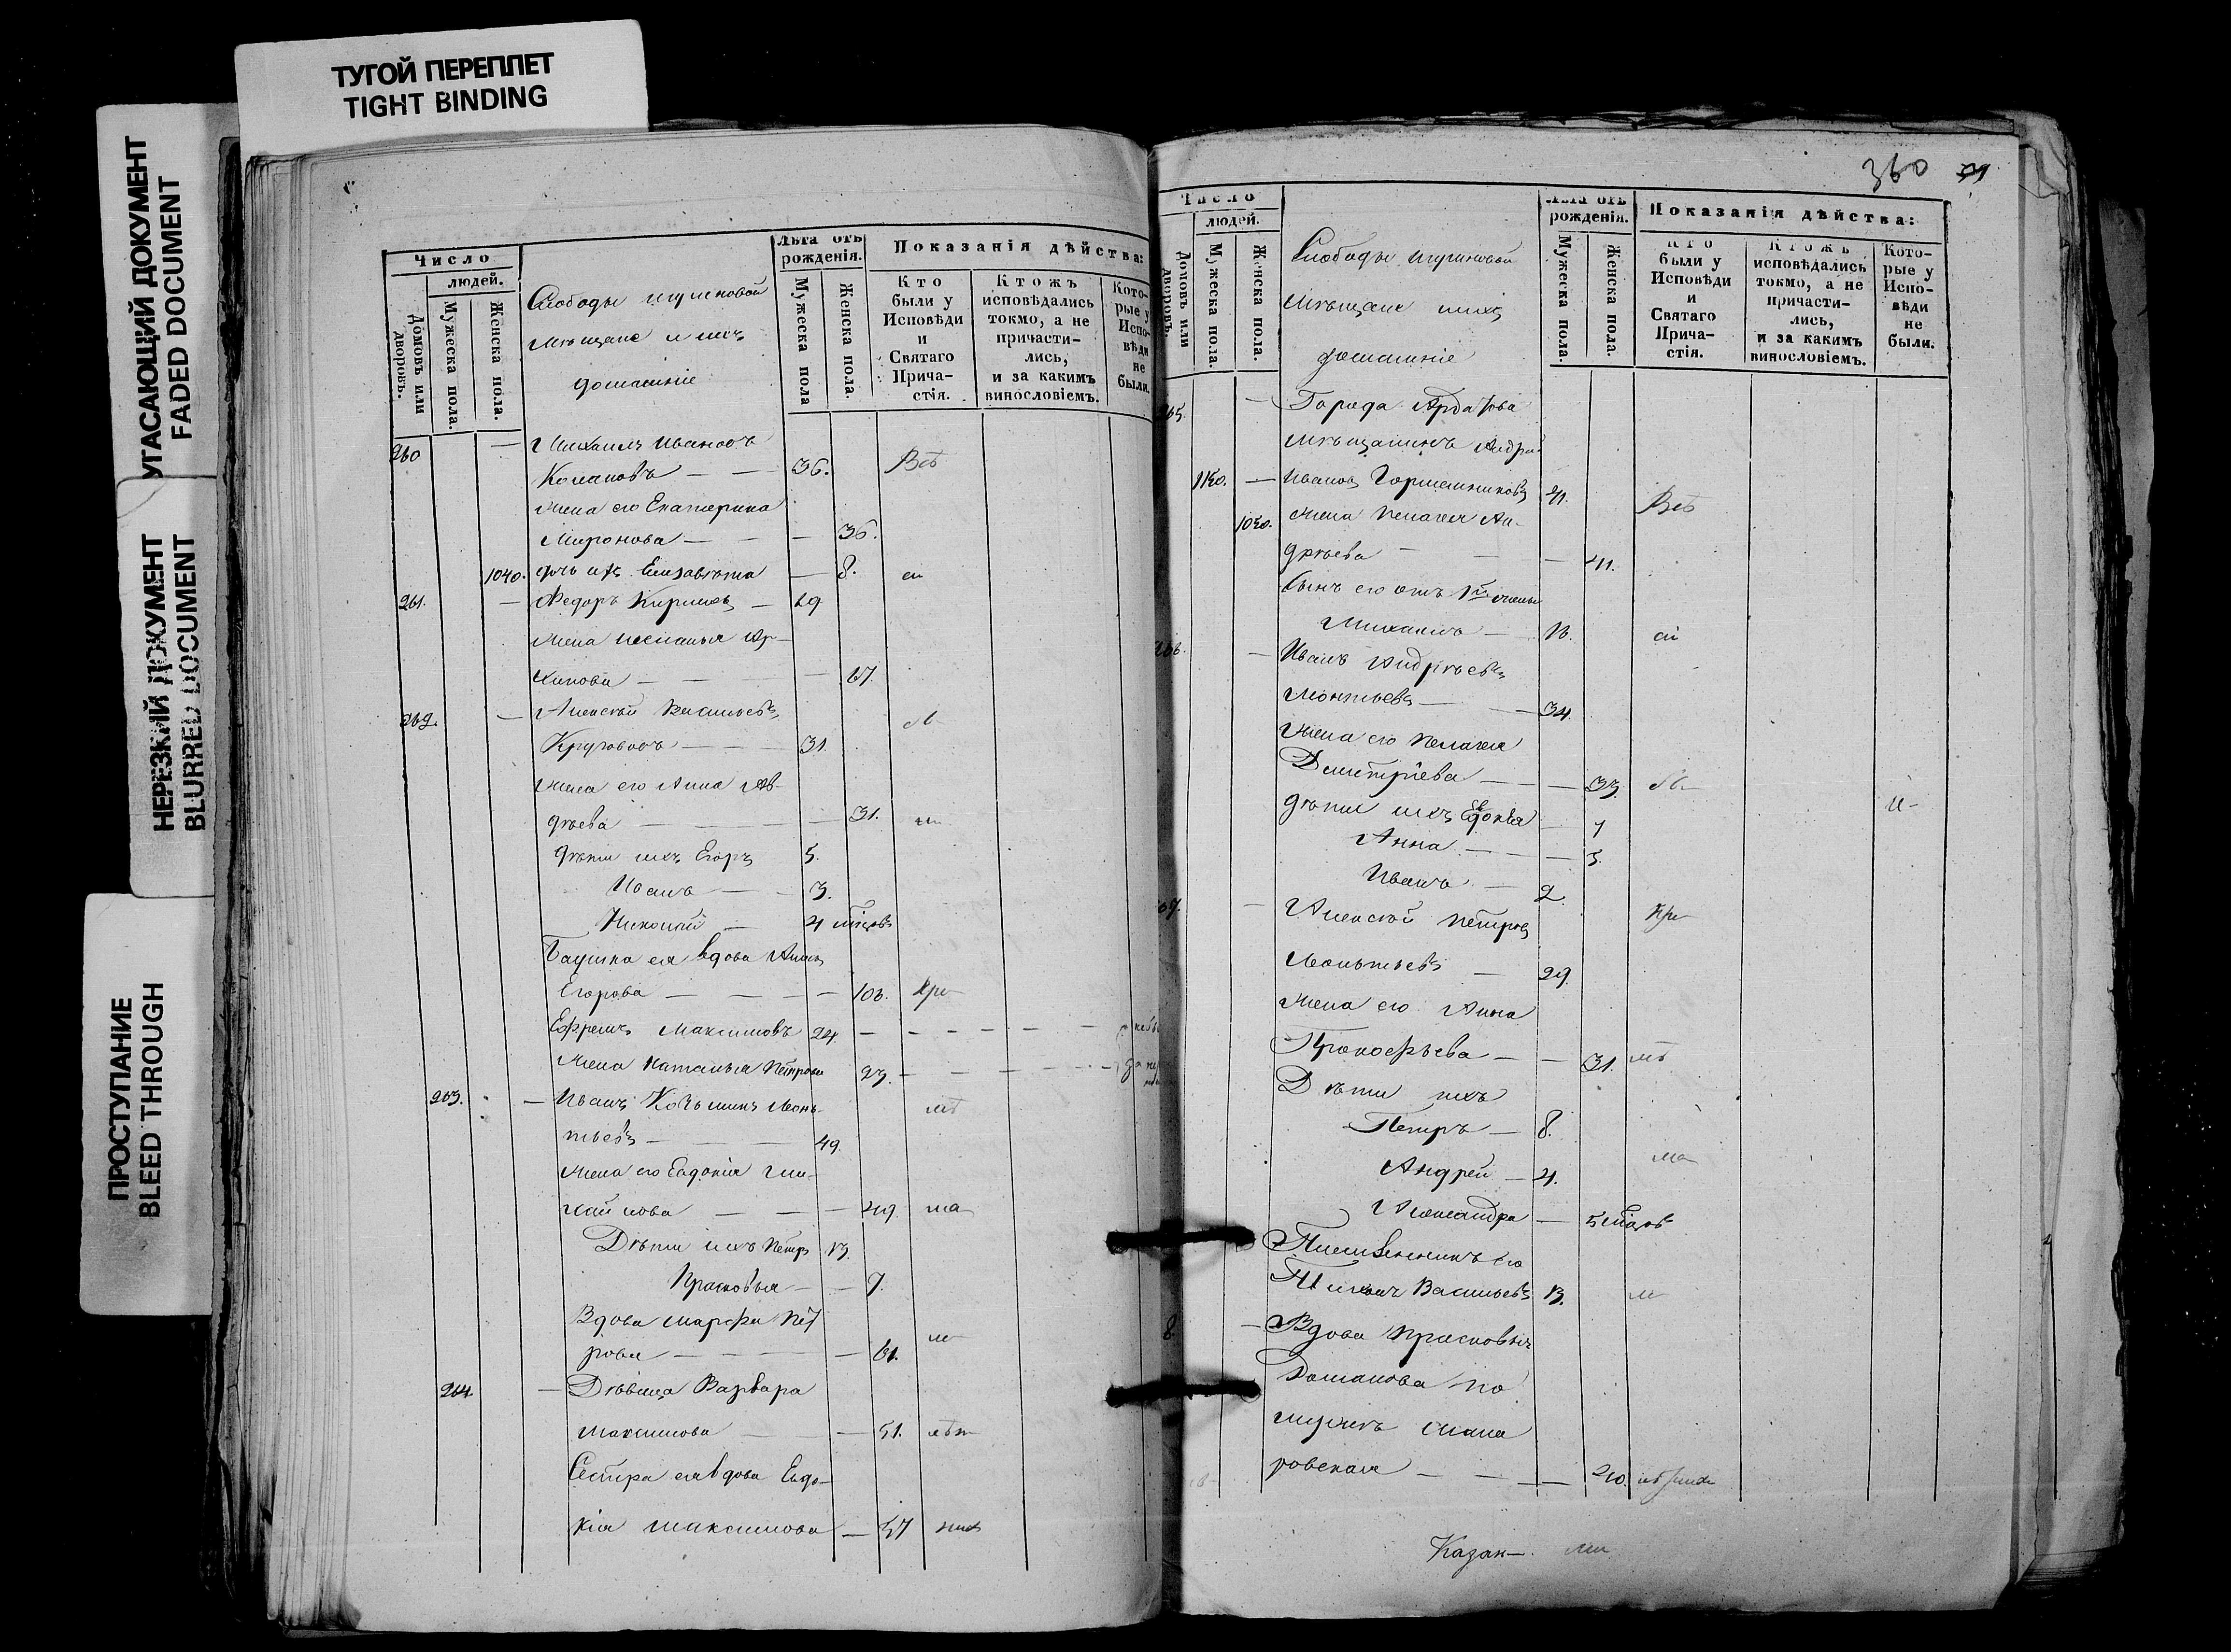 ТУГОЙ ПЕРЕПЛЕТ
TIGHT BINDING
УГАСАЮЩИЙ ДОКУМЕНТ
FADED DOCUMENT
НЕРЕЗКИЙ ДОКУМЕНТ
BLURRED DOCUMENT
ПРОСТУПАНИЕ
BLEED THROUGH
Число
людей.
Домовъ или дворовъ.
Мужеска пола.
Женска пола.
Слободы
Мѣщане и ихъ
домашніе
Лѣта отъ рожденія.
Мужеска пола
Женска пола.
Показанія дѣйства:
Кто были у Исповѣди и Святаго Прича-стія.
Ктожъ исповѣдались токмо, а не причасти-лись, и за какимъ винословіемъ.
Кото-рые у Испо-вѣди не были.
260 — Михаилъ Ивановъ
— — 36. Всѣ
жена его Екатерина
Миронова — — — 36.
1040. дочь ихъ Елизавета — 8.
261. — Федоръ —
жена Ар-
хипова — — — 67.
262. — Алексѣй Васильевъ
Круговъ — — 31.
жена его Анна Ав-
дѣева — — — 31.
дѣти ихъ Егоръ 5.
Иванъ — — 3.
Николай — 4 мѣсяцовъ
Баушка ея вдова Анна
Егорова — — —
Ефремъ Максимовъ 24. — — — — — —
жена Наталья Петрова 23. — — — — —
263. — Иванъ Козьминъ Леонь-
тьевъ — — 49.
жена его Евдокія Ми-
хайлова — — — 49.
Дѣти ихъ Петръ 13.
Прасковья — — 7.
Вдова Марфа Пет
рова — — — — 61.
264. — Дѣвица Варвара
Максимова — — 51.
Сестра ея вдова Евдо-
кія Максимова — 47
360
Число
людей.
Домовъ или дворовъ.
Мужеска пола.
Женска пола.
Слободы
Мѣщане ихъ
домашніе
Лѣта отъ рожденія.
Мужеска пола.
Женска пола.
Показанія дѣйства:
Кто были у Исповѣди и Святаго Прича-стія.
Ктожъ исповѣдались токмо, а не причасти-лись, и за какимъ винословіемъ.
Кото-рые у Испо-вѣди не были.
65. — Города Ардатова
мѣщанинъ Андрей
1150. — Ивановъ Горшешниковъ 41. Всѣ
1050. жена Пелагея Ан-
дрѣева — — — 41.
Сынъ его отъ 1й жены
Михаилъ —
66. — Иванъ Андрѣевъ
Леонтьевъ — — 34.
жена его Пелагея
Димитріева — — 33.
дѣти ихъ Евдокія — 7
Анна — — 5.
Иванъ — 2.
67. — Алексѣй Петровъ
Леонтьевъ — 29.
жена его Анна
Прокофьева — — 31.
Дѣти ихъ
Петръ — 8.
Андрей — 4.
Александра — 5 мѣсяцовъ
Племянникъ его
Васильевъ 13.
8. — Вдова Прасковья
Романова по
мужѣ
ровская — — —
Казан—